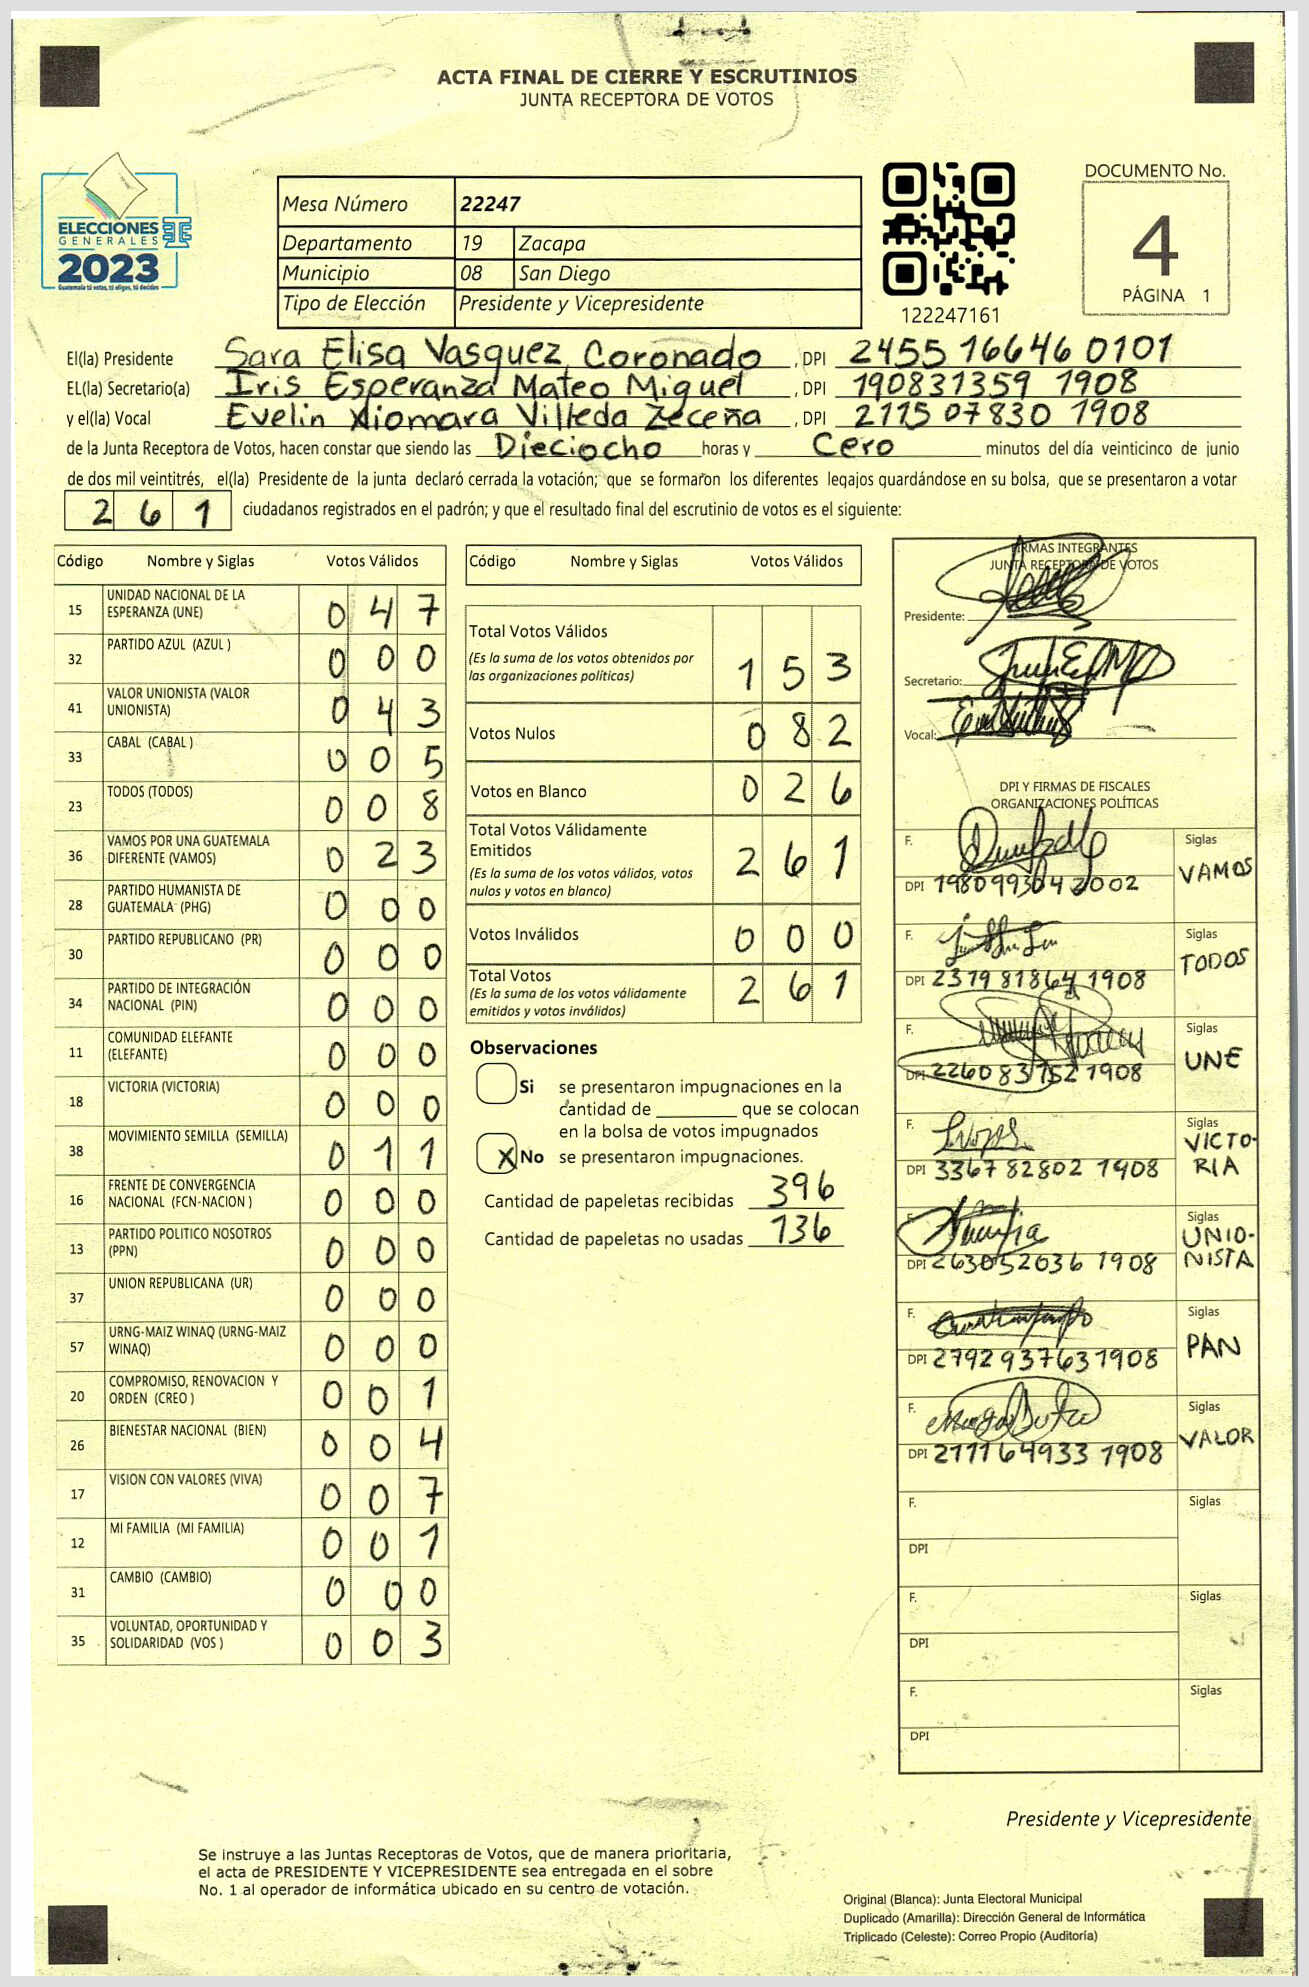 ACTA FINAL DE CIERRE Y ESCRUTINIOS
JUNTA RECEPTORA DE VOTOS
ELECCIONES
GENERALES
2023
Guatemala tú votas, tú eliges, tú decides
Mesa Número 22247
Departamento 19 Zacapa
Municipio 08 San Diego
Tipo de Elección Presidente y Vicepresidente
122247161
DOCUMENTO No.
4
PÁGINA 1
El(la) Presidente Sara Elisa Vasquez Coronado, DPI 2455 16646 0101
EL(la) Secretario(a) Iris Esperanza Mateo Miguel, DPI 190831359 1908
y el(la) Vocal Evelin Xiomara Villeda Zeceña, DPI 2115 07830 1908
de la Junta Receptora de Votos, hacen constar que siendo las Dieciocho horas y Cero minutos del día veinticinco de junio
de dos mil veintitrés, el(la) Presidente de la junta declaró cerrada la votación; que se formaron los diferentes legajos guardándose en su bolsa, que se presentaron a votar
261 ciudadanos registrados en el padrón; y que el resultado final del escrutinio de votos es el siguiente:
Código Nombre y Siglas Votos Válidos
15 UNIDAD NACIONAL DE LA ESPERANZA (UNE) 047
32 PARTIDO AZUL (AZUL ) 000
41 VALOR UNIONISTA (VALOR UNIONISTA) 043
33 CABAL (CABAL ) 005
23 TODOS (TODOS) 008
36 VAMOS POR UNA GUATEMALA DIFERENTE (VAMOS) 023
28 PARTIDO HUMANISTA DE GUATEMALA (PHG) 000
30 PARTIDO REPUBLICANO (PR) 000
34 PARTIDO DE INTEGRACIÓN NACIONAL (PIN) 000
11 COMUNIDAD ELEFANTE (ELEFANTE) 000
18 VICTORIA (VICTORIA) 000
38 MOVIMIENTO SEMILLA (SEMILLA) 011
16 FRENTE DE CONVERGENCIA NACIONAL (FCN-NACION ) 000
13 PARTIDO POLITICO NOSOTROS (PPN) 000
37 UNION REPUBLICANA (UR) 000
57 URNG-MAIZ WINAQ (URNG-MAIZ WINAQ) 000
20 COMPROMISO, RENOVACION Y ORDEN (CREO ) 001
26 BIENESTAR NACIONAL (BIEN) 004
17 VISION CON VALORES (VIVA) 007
12 MI FAMILIA (MI FAMILIA) 001
31 CAMBIO (CAMBIO) 000
35 VOLUNTAD, OPORTUNIDAD Y SOLIDARIDAD (VOS ) 003
Código Nombre y Siglas Votos Válidos
Total Votos Válidos 153
(Es la suma de los votos obtenidos por
las organizaciones políticas)
Votos Nulos 082
Votos en Blanco 026
Total Votos Válidamente
Emitidos 261
(Es la suma de los votos válidos, votos
nulos y votos en blanco)
Votos Inválidos 000
Total Votos 261
(Es la suma de los votos válidamente
emitidos y votos inválidos)
Observaciones
Si se presentaron impugnaciones en la
cantidad de ________ que se colocan
en la bolsa de votos impugnados
X No se presentaron impugnaciones.
Cantidad de papeletas recibidas 396
Cantidad de papeletas no usadas 136
FIRMAS INTEGRANTES
JUNTA RECEPTORA DE VOTOS
Presidente:
Secretario:
Vocal:
DPI Y FIRMAS DE FISCALES
ORGANIZACIONES POLÍTICAS
F. Siglas
DPI 1980993042002 VAMOS
F. Siglas
DPI 2379 81864 1908 TODOS
F. Siglas
DPI 2260 83752 1908 UNE
F. Siglas
DPI 3367 82802 1908 VICTORIA
F. Siglas
DPI 263052036 1908 UNIONISTA
F. Siglas
DPI 2792 93763 1908 PAN
F. Siglas
DPI 2111 64933 1908 VALOR
F. Siglas
DPI
F. Siglas
DPI
F. Siglas
DPI
Presidente y Vicepresidente
Se instruye a las Juntas Receptoras de Votos, que de manera prioritaria,
el acta de PRESIDENTE Y VICEPRESIDENTE sea entregada en el sobre
No. 1 al operador de informática ubicado en su centro de votación.
Original (Blanca): Junta Electoral Municipal
Duplicado (Amarilla): Dirección General de Informática
Triplicado (Celeste): Correo Propio (Auditoría)